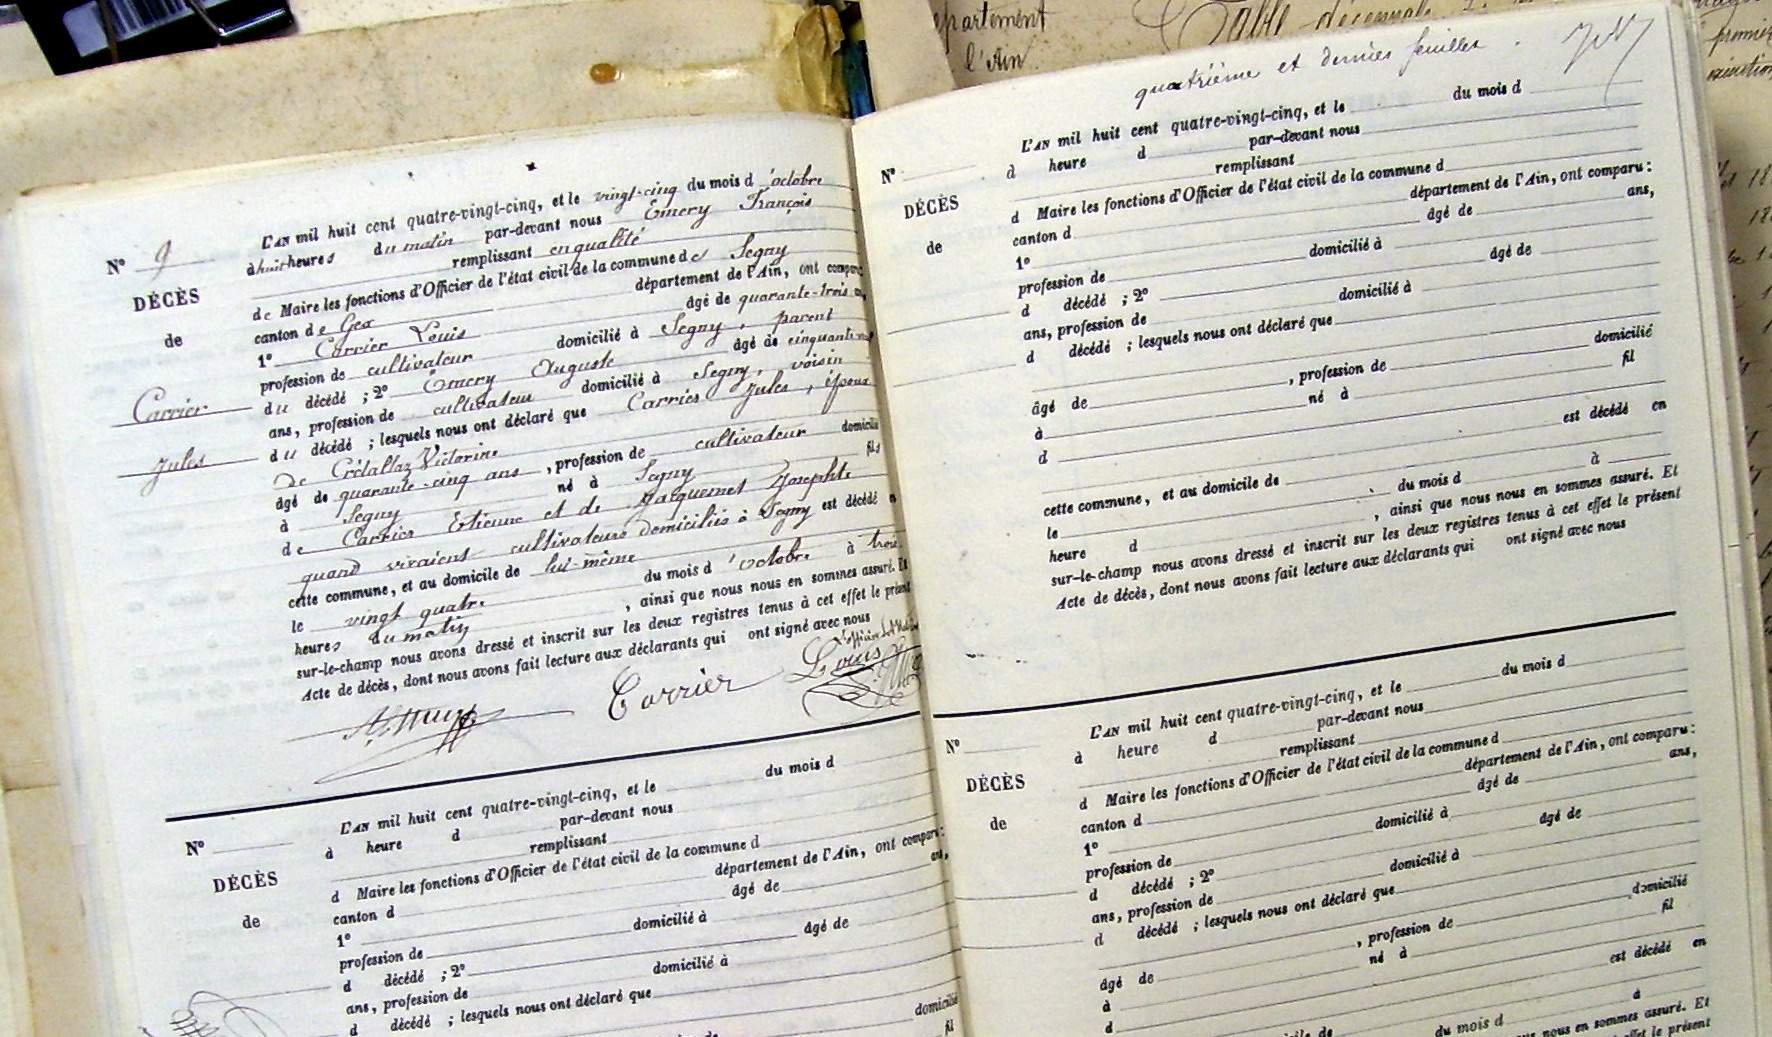 epartement
l'Ain
Table décennale
premier
quatrième et dernier feuillet.
N° 9
DÉCÈS
de
Carrier
Jules
L'AN mil huit cent quatre-vingt-cinq, et le vingt-cinq du mois d'octobre
à huit heures du matin par-devant nous Emery François
remplissant en qualité
de Maire les fonctions d'Officier de l'état civil de la commune de Segny
canton de Gex département de l'Ain, ont comparu:
1° Carrier Louis âgé de quarante-trois
profession de cultivateur domicilié à Segny, parent
du décédé ; 2° Emery Auguste âgé de cinquante
ans, profession de cultivateur domicilié à Segny, voisin
du décédé ; lesquels nous ont déclaré que Carrier Jules, époux
De Crétallaz Victorine
âgé de quarante-cinq ans, profession de cultivateur domicilié
à Segny né à Segny fils
de Carrier Etienne et de Jacquemet Josephte
quand vivaient cultivateurs domiciliés à Segny est décédé en
cette commune, et au domicile de lui-même
le vingt quatre du mois d'octobre à trois
heures du matin, ainsi que nous nous en sommes assuré. Et
sur-le-champ nous avons dressé et inscrit sur les deux registres tenus à cet effet le présent
Acte de décès, dont nous avons fait lecture aux déclarants qui ont signé avec nous
Carrier Louis
N°
DÉCÈS
de
L'AN mil huit cent quatre-vingt-cinq, et le du mois d
à heure d par-devant nous
remplissant
d Maire les fonctions d'Officier de l'état civil de la commune d
canton d département de l'Ain, ont comparu:
1° âgé de ans,
profession de domicilié à
d décédé ; 2° âgé de
ans, profession de domicilié à
d décédé ; lesquels nous ont déclaré que
domicilié
fil
N°
DÉCÈS
de
L'AN mil huit cent quatre-vingt-cinq, et le du mois d
à heure d par-devant nous
remplissant
d Maire les fonctions d'Officier de l'état civil de la commune d
canton d département de l'Ain, ont comparu:
1° âgé de ans,
profession de domicilié à
d décédé ; 2° âgé de
ans, profession de domicilié à
d décédé ; lesquels nous ont déclaré que
âgé de , profession de domicilié
à né à fil
d
est décédé en
cette commune, et au domicile de
le du mois d à
heure d , ainsi que nous nous en sommes assuré. Et
sur-le-champ nous avons dressé et inscrit sur les deux registres tenus à cet effet le présent
Acte de décès, dont nous avons fait lecture aux déclarants qui ont signé avec nous
N°
DÉCÈS
de
L'AN mil huit cent quatre-vingt-cinq, et le du mois d
à heure d par-devant nous
remplissant
d Maire les fonctions d'Officier de l'état civil de la commune d
canton d département de l'Ain, ont comparu:
1° âgé de ans,
profession de domicilié à
d décédé ; 2° âgé de
ans, profession de domicilié à
d décédé ; lesquels nous ont déclaré que
âgé de , profession de domicilié
à né à fil
d
est décédé en
du mois d à
nous en sommes assuré. Et
effet le présent